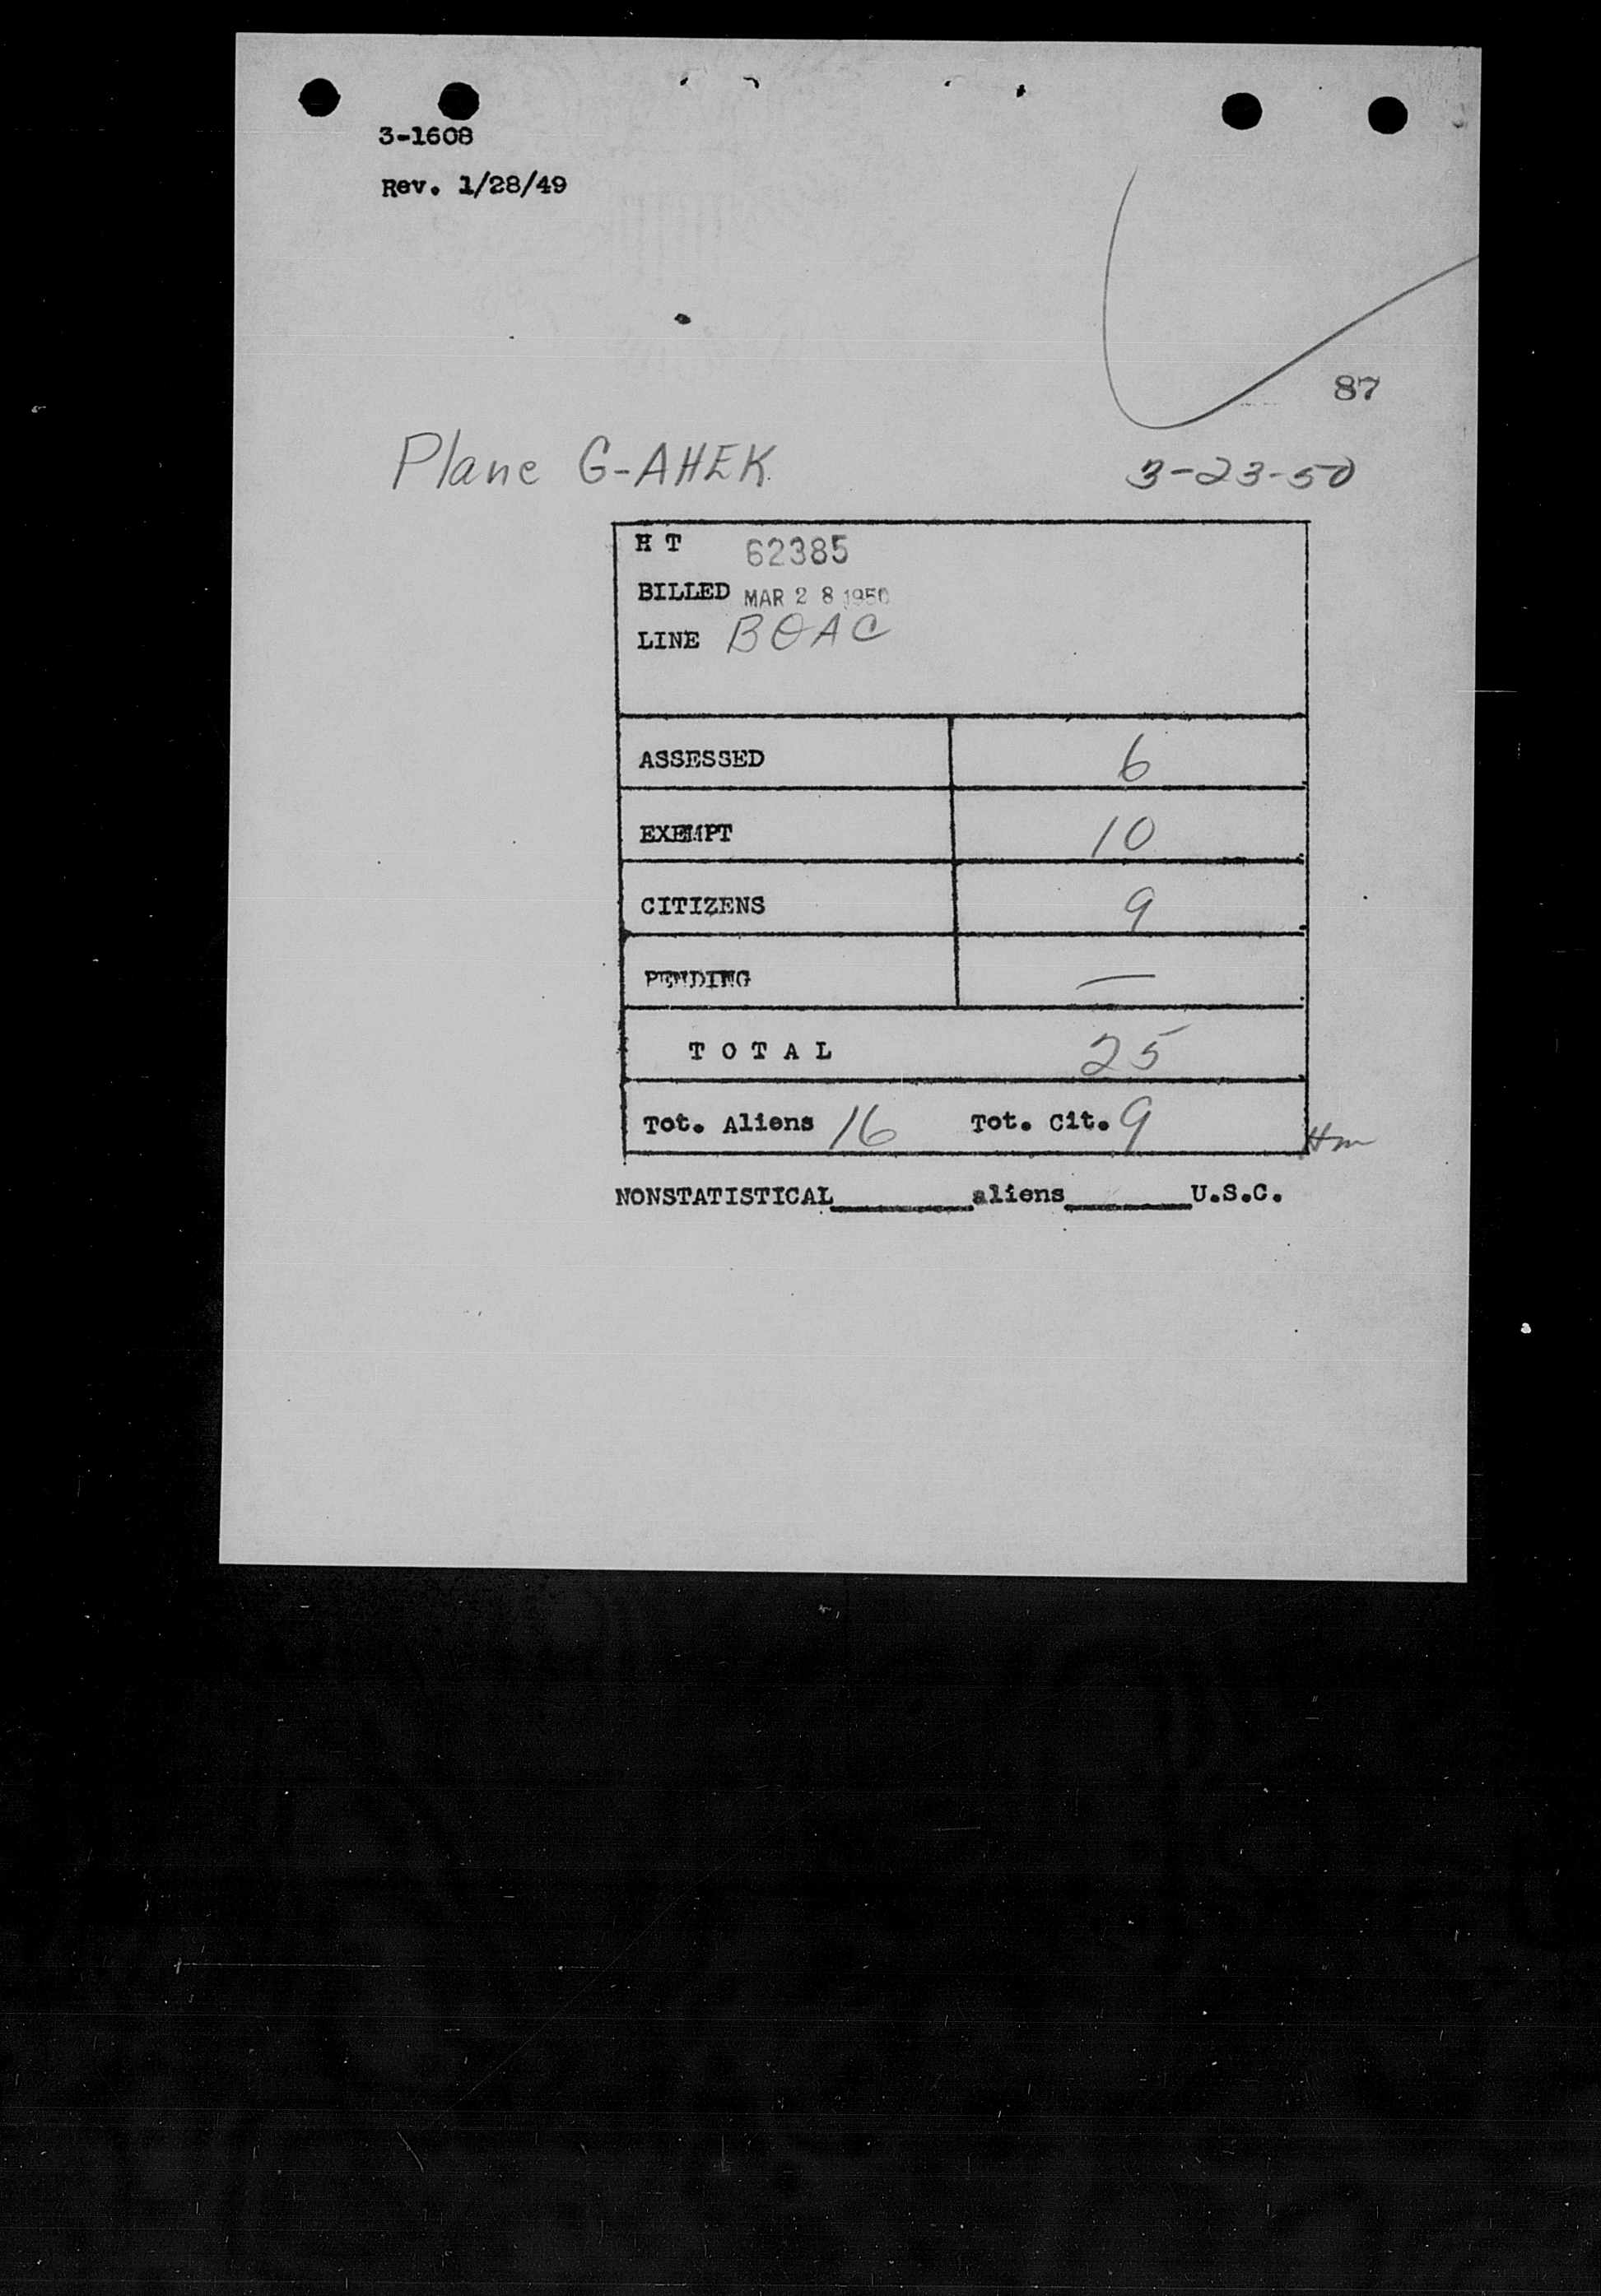 3-1608
Rev. 1/28/49
87
Plane G-AHEK
3-23-50
H T 62385
BILLED MAR 28 1950
LINE BOAC
ASSESSED 6
EXEMPT 10
CITIZENS 9
PENDING —
T O T A L 25
Tot. Aliens 16 Tot. Cit. 9
Hm
NONSTATISTICAL________aliens________U.S.C.